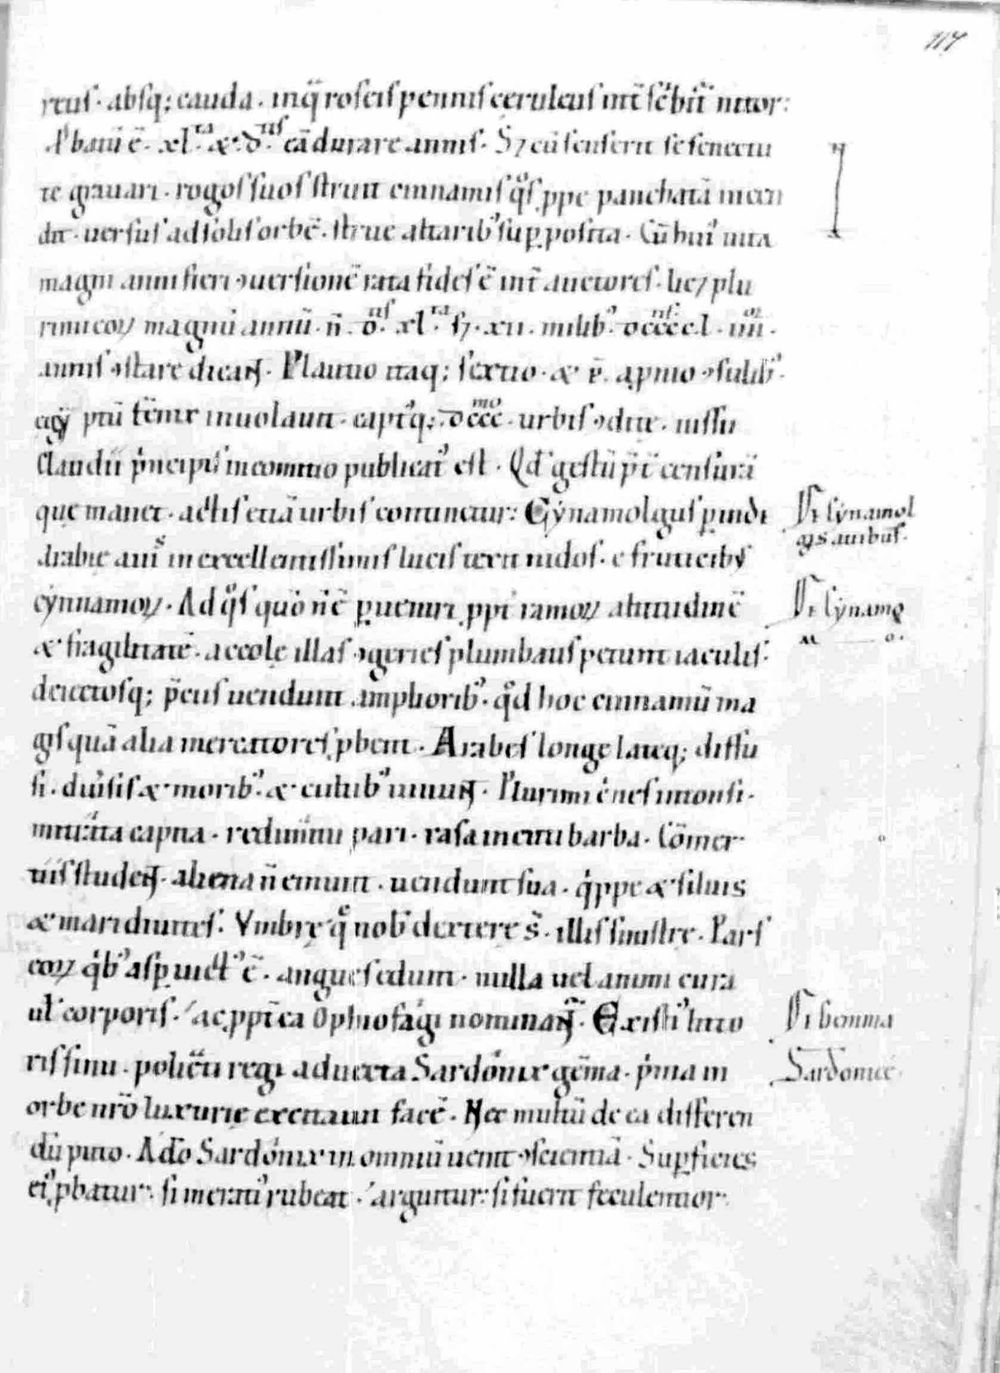 117
rtus · absq; cauda · inq̃ roseis pennis ceruleus int̃ sc̃bit̃ nitor:
P̃batũ ẽ · xl.ᵗᵃ & · d.ᵗⁱˢ eã durare annis · Sꝫ cũ senserit se senectu
te grauari · rogos suos struit cinnamis q̊s ꝓpe panchatã incen
dit · uersus ad solis orbẽ · strue altarib᾽ suꝑposita · Cũ hui᾽ uita
magni anni fieri ꝯuersionẽ rata fides ẽ int̃ auctores · licꝫ plu
rimi eoꝝ magnũ annũ · ñ · d.ᵗⁱˢ xl.ᵗᵃ sꝫ · xii · milib᾽ · dcccc.l · iiii ·
annis ꝯstare dicant̃ · Plautio itaq; sextio · & P̃ · apnio ꝯsulib᾽ ·
egỹ ptũ fẽnix inuolauit · capt᾽q; · dccc.ᵐᵒ · urbis ꝯdite · iussu
Claudii p̃ncipis in comitio publicat᾽ est · Qd̃ gestũ p̃t̃ censurã
quę manet · actis etiã urbis continetur: Cẏnamolgus ꝑinde
Arabie auis in excellentissimis lucis texit nidos · e fruticibꝰ
cẏnnamoꝝ · Ad q̊s quõ ñ ẽ ꝑueniri ꝓpt̃ ramoꝝ altitudinẽ
& fragilitatẽ · accolę illas ꝯgeries plumbatis petunt iaculis ·
deiectosq; p̃ciis uendunt amplorib᾽ · q̊d hoc cinnamũ ma
gis quã alia mercatores ꝓbent · Arabes longe lateq; diffu
si · diũsis & · morib᾽ & · cultib᾽ uiuunt̃ · Plurimi c̃nes intonsi ·
mitrata capita · redimitu pari · rasa in cutẽ barba · Cõmer
tiis student̃ · aliena ñ emunt · uendunt sua · q̃ppe & siluis
& mari diuites · Vmbrę q̊ nob᾽ dextere s̃ · illis sinistre · Pars
eoꝝ q̃b᾽ asꝑ uict᾽ ẽ · angues edunt · nulla uel animi cura
ul̃ corporis · ac ꝓpt̃ea Ophiofági nominant̃ · Ex isti᾽ litto
rissinu · policrati regi aduecta Sardónix gẽma · p̃ma in
orbe nr̃o luxurię excitauit facẽ · Nec multũ de ea differen
dũ puto · Adeo Sardónix in omniũ uenit ꝯscientiã · Suꝑficies
ei᾽ ꝓbatur: si merati᾽ rubeat · arguitur: si fuerit feculentior:
De Cẏnamol
gis auibus ·
De Cẏnamo
De Gemma
Sardonice